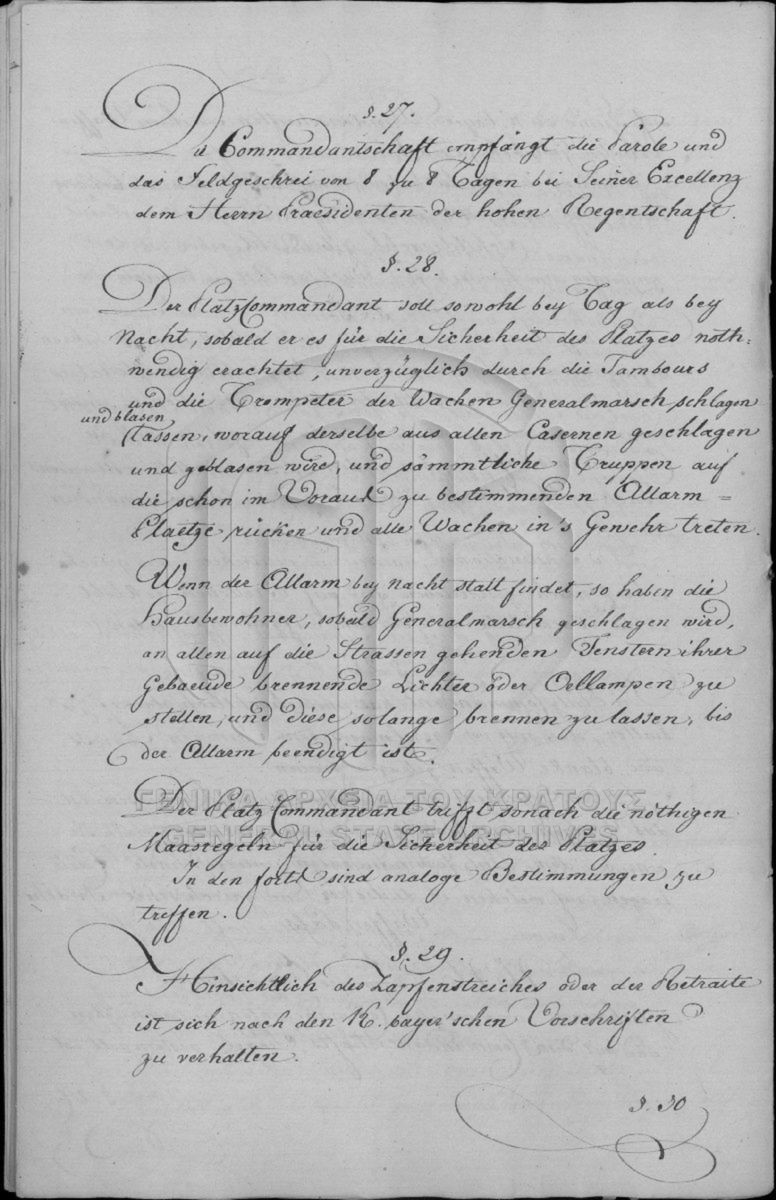 §. 27.
Die Commandantschaft empfängt die Parole und
das Feldgeschrei von 8 zu 8 Tagen bei Seiner Excellenz
dem Herrn Praesidenten der hohen Regentschaft.
§. 28.
Der Platz Commandant soll sowohl bey Tag als bey
Nacht, sobald er es für die Sicherheit des Platzes noth-
wendig erachtet, unverzüglich durch die Tambours
und die Trompeter der Wachen Generalmarsch schlagen
und blasen
lassen, worauf derselbe aus allen Casernen geschlagen
und geblasen wird, und sämmtliche Truppen auf
die schon im Voraus zu bestimmenden Allarm=
Plaetze rücken und alle Wachen in's Gewehr treten.
Wenn der Allarm bey Nacht statt findet, so haben die
Hausbewohner, sobald Generalmarsch geschlagen wird,
an allen auf die Strassen gehenden Fenstern ihrer
Gebaeude brennende Lichter oder Oellampen zu
stellen, und diese solange brennen zu lassen, bis
der Allarm beendigt ist.
ΓΕΝΙΚΑ ΑΡΧΕΙΑ ΤΟΥ ΚΡΑΤΟΥΣ
Der Platz Commandant trifft sonach die nöthigen
GENERAL STATE ARCHIVES
Maasregeln für die Sicherheit des Platzes.
In den forts sind analoge Bestimmungen zu
treffen.
§. 29.
Hinsichtlich des Zapfenstreiches oder der Retraite
ist sich nach den K. bayer'schen Vorschriften
zu verhalten.
§. 30